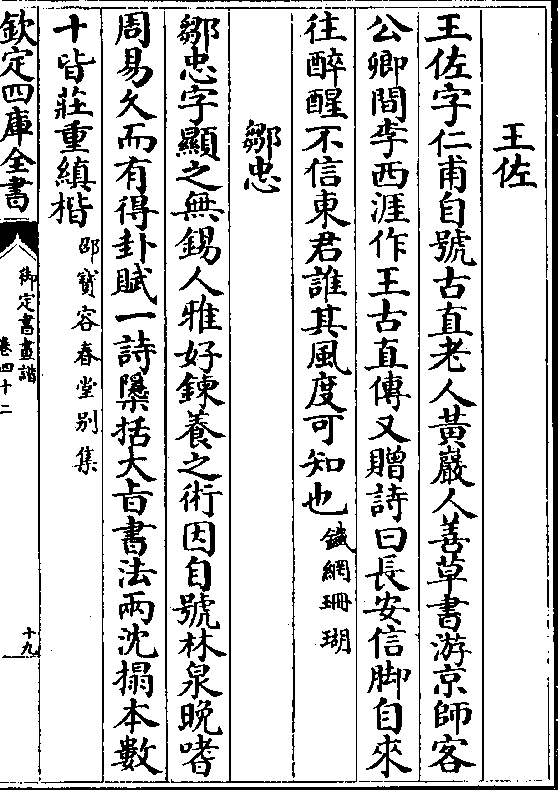 王佐
王佐字仁甫自號古直老人黃巖人善草書游京師客
公卿間李西涯作王古直傳又贈詩曰長安信脚自來
往醉醒不信東君誰其風度可知也鐵網珊瑚
鄒忠
鄒忠字顯之無錫人雅好鍊養之術因自號林泉晚嗜
周易久而有得卦賦一詩檃括大㫖書法兩沈搨本數
十皆莊重縝楷邵寶容春堂別集
欽定四庫全書
御定書畫譜
卷四十二
十九